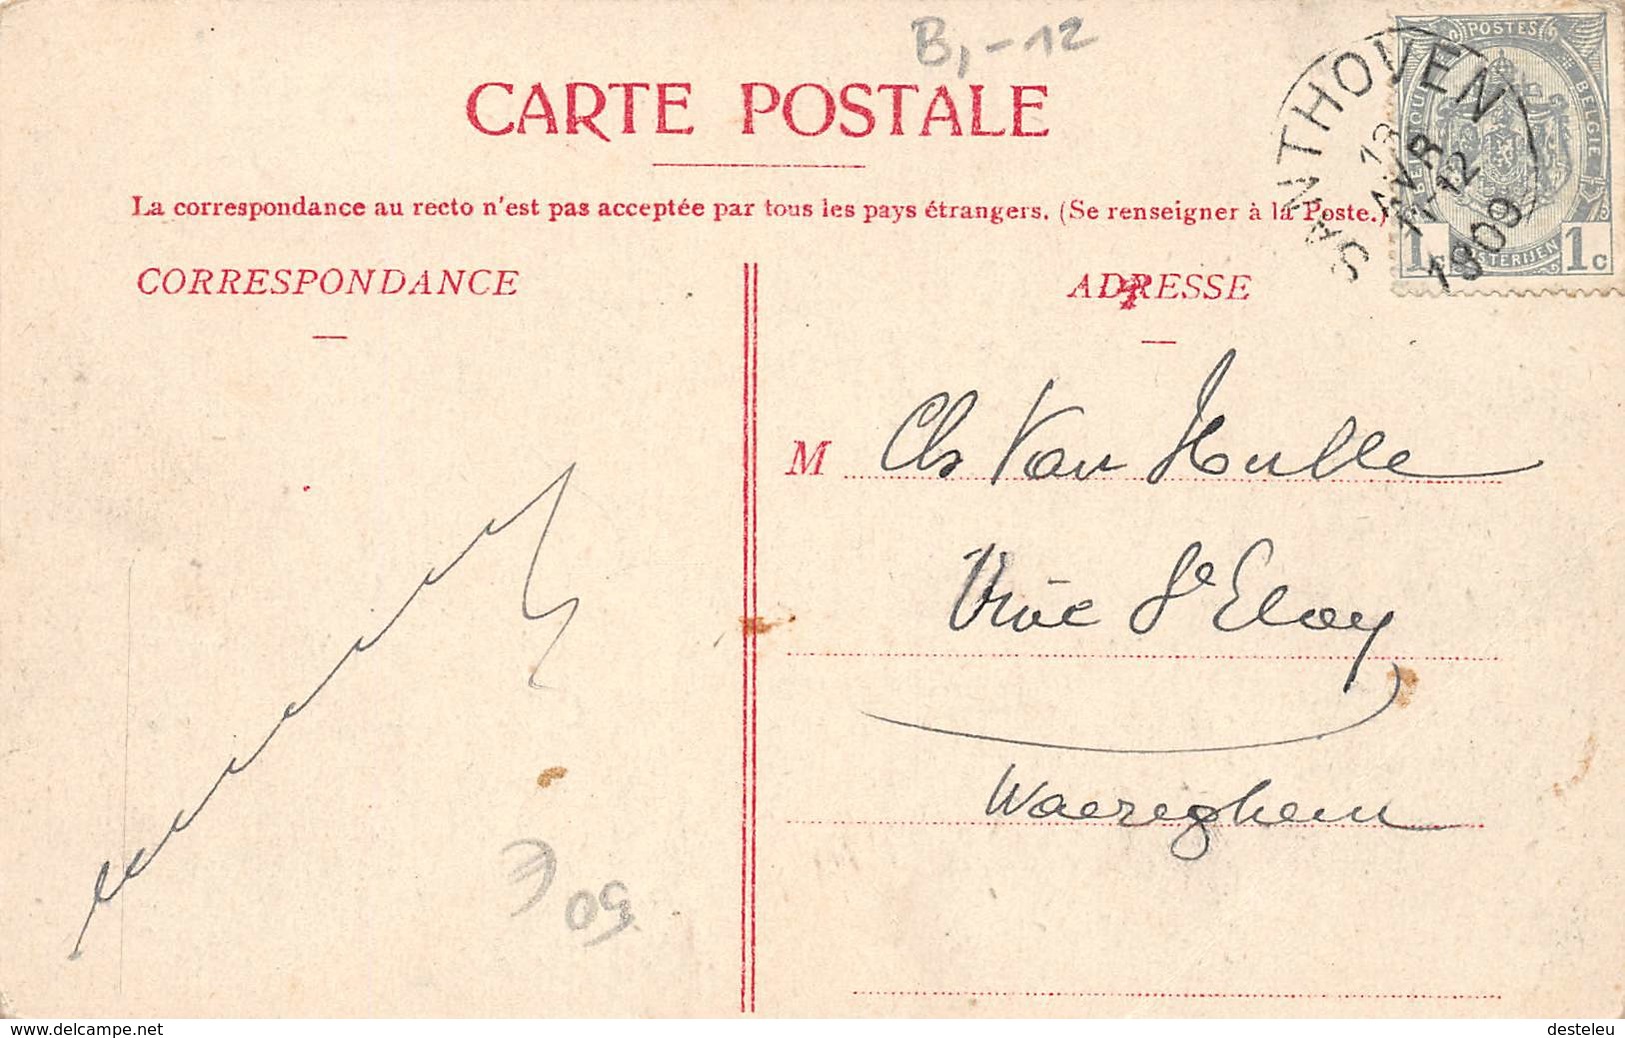 B,-12
CARTE POSTALE
La correspondance au recto n'est pas acceptée par tous les pays étrangers. (Se renseigner à la Poste.)
SANTHOVEN
AVR
11-12
1909
POSTES
BELGIQUE
BELGIE
POSTERIJEN
1 1 c
CORRESPONDANCE
ADRESSE
M Ch Van Hulle
Vive St Eloy
Waereghem
€ 50
www.delcampe.net
desteleu